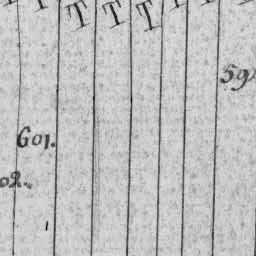 T T T T T
59
601.
02.
1